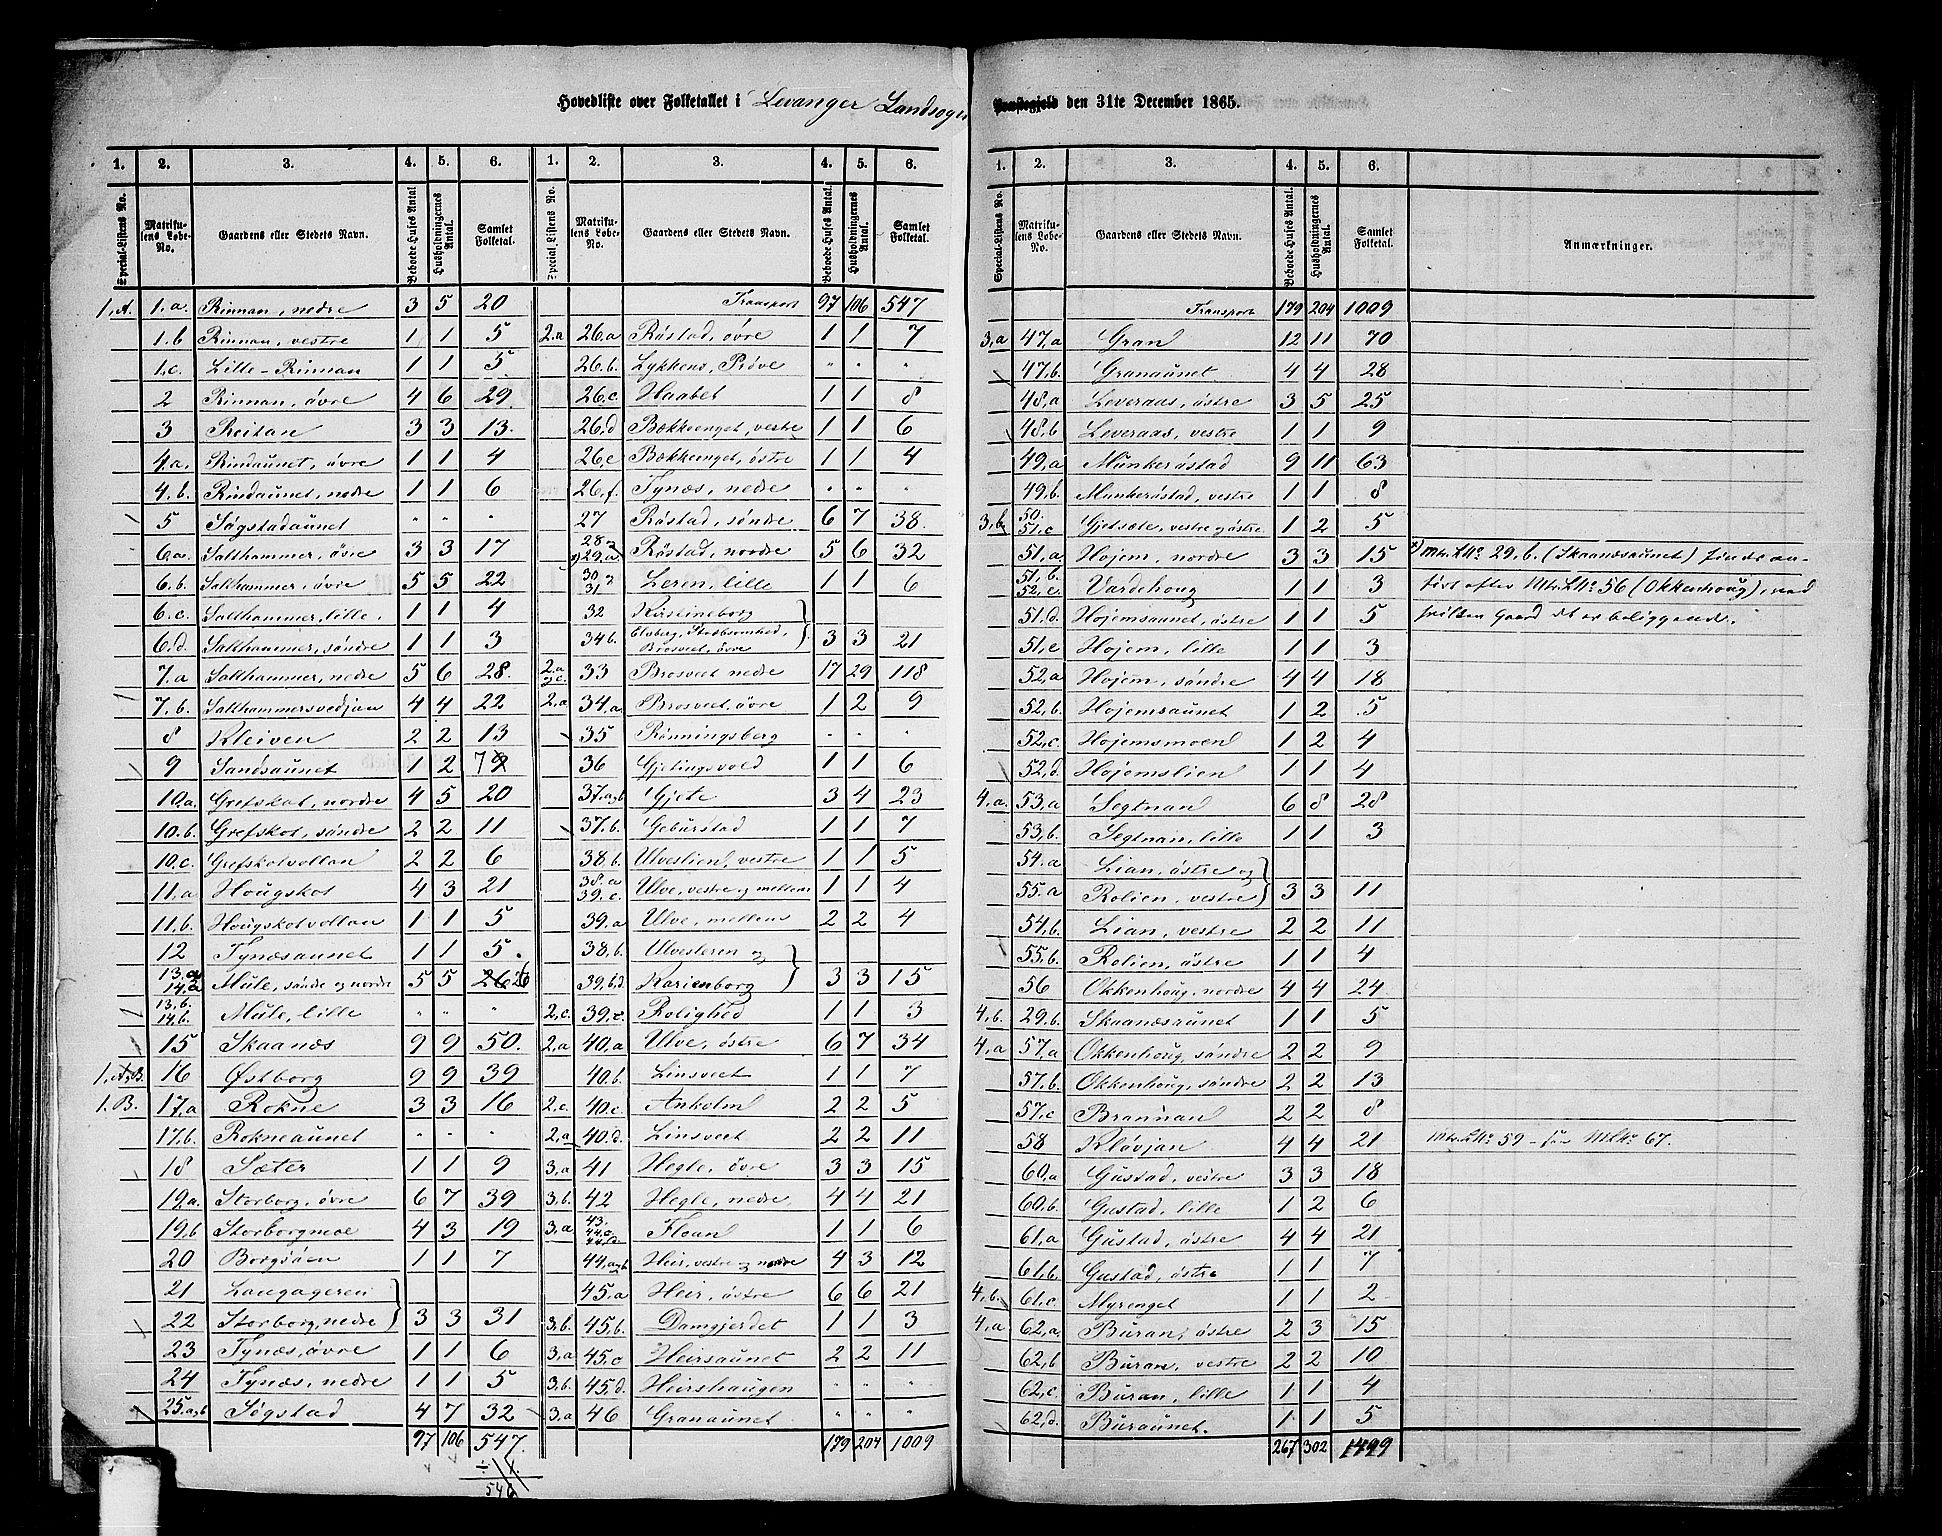 Hovedliste over Folketallet i Levanger Landsogn Præstegjeld den 31te December 1865.
1. 2. 3. 4. 5. 6. 1. 2. 3. 4. 5. 6.
Special-Listens No. Matrikulens Løbe-No. Gaardens eller Stedets Navn. Beboede Huses Antal. Husholdningernes Antal. Samlet Folketal. Special-Listens No. Matrikulens Løbe-No. Gaardens eller Stedets Navn. Beboede Huses Antal. Husholdningernes Antal. Samlet Folketal.
1.A. 1.a. Rinnan, nedre 3 5 20
1.b Rinnan, vestre 1 1 5
1.c. Lille-Rinnan 1 1 5
2 Rinnan, øvre 4 6 29
3 Reitan 3 3 13
4.a. Rindaunet, øvre 1 1 4
4.b. Rindaunet, nedre 1 1 6
5 Søgstadaunet " " "
6.a. Salthammer, øvre 3 3 17
6.b. Salthammer, øvre 5 5 22
6.c. Salthammer, lille 1 1 4
6.d. Salthammer, søndre 1 1 3
7.a Salthammer, nedre 5 6 28
7.b. Salthammersvedjan 4 4 22
8 Kleiven 2 2 13
9 Sandsaunet 1 2 7
10.a. Grefskot, nordre 4 5 20
10.b. Grefskot, søndre 2 2 11
10.c. Grefskotvollan 2 2 6
11.a Hougskot 4 3 21
11.b. Hougskotvollan 1 1 5
12 Tynæsaunet 1 1 5
13.a og 14.a Mule, søndre og nordre 5 5 26
13.b. 14.b. Mule, lille " " "
15 Skaanæs 9 9 50
1.A.B. 16 Østborg 9 9 39
1.B. 17.a Rokne 3 3 16
17.b. Rokneaunet " " "
18 Sæter 1 1 9
19.a. Storborg, øvre 6 7 39
19.b Storborgmoe 4 3 19
20 Borgsøen 1 1 7
21 Langageren
22 Storborg, nedre 3 3 31
23 Tynæs, øvre 1 1 6
24 Tynæs, nedre 1 1 5
25.a.b Søgstad 4 7 32
97 106 547
546
Transport 97 106 547
2.a 26.a Røstad, øvre 1 1 7
26.b. Lykkens Prøve " " "
26.c Haabet 1 1 8
26.d Bækkenget, vestre 1 1 6
26.e Bækkenget, østre 1 1 4
26.f. Tynæs, nedre " " "
27 Røstad, søndre 6 7 38
28 og 29.a. Røstad, nordre 5 6 32
30 og 31 Leren, lille 1 1 6
32 Kirstineborg
34.b. Elsberg, Stræbsomhed, Brosveet, øvre 3 3 21
2.a 2.c. 33 Brosveet nedre 17 29 118
2.a 34.a Brosveet, øvre 1 2 9
35 Rønningsberg " " "
36 Gjetingsvold 1 1 6
37.a.b Gjete 3 4 23
37.b. Geburstad 1 1 7
38.b. Ulveslien, vestre 1 1 5
38.a 39.c. Ulve, vestre og mellem 1 1 4
39.a Ulve, mellem 2 2 4
38.b. Ulvesleren og
39.b.d. Karienborg 3 3 15
2.c. 39.c. Rolighed 1 1 3
2.a 40.a Ulve, østre 6 7 34
40.b. Linsveet 1 1 7
2.c. 40.c Ankolm 2 2 5
2.a 40.d. Linsveet 2 2 11
3.a 41 Hegle, øvre 3 3 15
3.b. 42 Hegle, nedre 4 4 21
3.a 43. 44.c 44.d Floan 1 1 6
44.a.b Heir, vestre og nordre 4 3 12
45.a Heir, østre 6 6 21
3.b. 45.b. Damgjerdet 1 1 3
3.a 45.c Heirsaunet 2 2 11
3.b. 45.d. Heirshaugen " " "
3.a 46 Granaunet " " "
179 204 1009
1. 2. 3. 4. 5. 6.
Special-Listens No. Matrikulens Løbe-No. Gaardens eller Stedets Navn. Beboede Huses Antal. Husholdningernes Antal. Samlet Folketal. Anmærkninger.
Transport 179 204 1009
3.a 47.a Gran 12 11 70
47.b. Granaunet 4 4 28
48.a Leveraas, østre 3 5 25
48.b Leveraas, vestre 1 1 9
49.a Munkerøstad 9 11 63
49.b. Munkerøstad, vestre 1 1 8
3.b. 50. 51.c Gjetsæte, vestre og østre 1 2 5
51.a Hojem, nordre 3 3 15
51.b. 52.e. Vardehoug 1 1 3
51.d. Hojemsaunet, østre 1 1 5
51.e Hojem, lille 1 1 3
52.a Hojem, søndre 4 4 18
52.b. Hojemsaunet 1 2 5
52.c. Hojemsmoen 1 2 4
52.d. Hojemslien 1 1 4
4.a. 53.a Segtnan 6 8 28
53.b. Segtnan, lille 1 1 3
54.a Lian, østre og
55.a Rolien, vestre 3 3 11
54.b. Lian, vestre 2 2 11
55.b. Rolien, østre 1 1 4
56 Okkenhoug, nordre 4 4 24
4.b. 29.b. Skaanæsaunet 1 1 5
4.a 57.a Okkenhoug, søndre 2 2 9
57.b. Okkenhoug, søndre 2 2 13
57.c Brannan 2 2 8
58 Kløvjan 4 4 21
60.a Gustad, vestre 3 3 18
60.b. Gustad, lille 1 2 6
61.a Gustad, østre 4 4 21
61.b. Gustad, østre 1 1 7
4.b. 61.c. Myrenget 1 1 2
4.a 62.a. Buran, østre 2 3 15
62.b Buran, vestre 2 2 10
62.c. Buran, lille 1 1 4
62.d. Buraunet. 1 1 5
267 302 1499
Mtr. L No. 29.b. (Skaanæsaunet) findes an-
ført efter Mtr. L No. 56 (Okkenhoug), ved
hvilken Gaard det er beliggende.
Mtr. L No. 59 - før Ml No. 67.